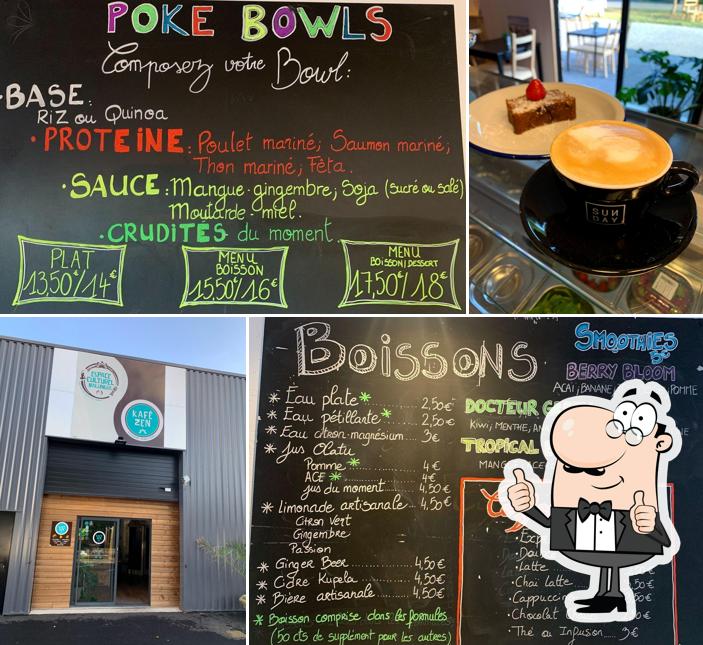 POKE BOWLS
Composez votre Bowl:
BASE:
RIZ ou Quinoa
• PROTEINE: Poulet mariné; Saumon mariné;
Thon mariné; Fêta.
• SAUCE: Mangue-gingembre; Soja (sucré ou salé)
Moutarde-miel.
• CRUDITÉS du moment
PLAT
13,50€/14€
MENU
BOISSON
15,50€/16€
MENU
BOISSON/DESSERT
17,50€/18€
SUN
DAY
ESPACE
CULTUREL
KAFÉ
ZEN
BOISSONS
* Eau plate* 2,50€
* Eau pétillante* 2,50€
* Eau citron-magnésium 3€
* Jus Olatu
Pomme* 4€
ACE* 4€
jus du moment 4,50€
* limonade artisanale 4,50€
Citron Vert
Gingembre
Passion
* Ginger Beer 4,50€
* Cidre Kupela 4,50€
* Bière artisanale 4,50€
* Boisson comprise dans les formules
(50 cts de supplément pour les autres)
SMOOTHIES
5€
BERRY BLOOM
ACAI; BANANE POMME
DOCTEUR G
KIWI; MENTHE; AN
TROPICAL
MAN
• Latte
• Chai latte
• Cappuccin
• Chocolat
• Thé ou Infusion 3€